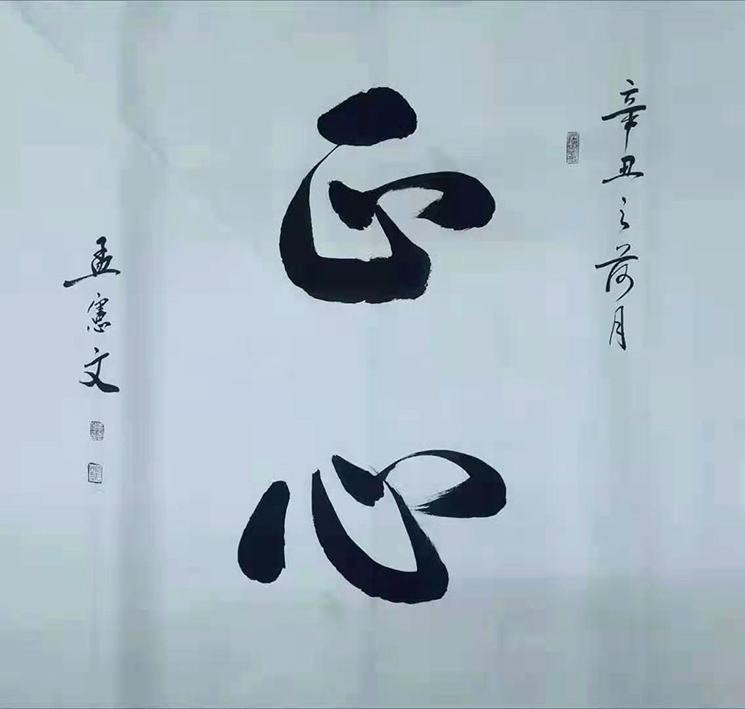 辛丑之荷月
正心
孟憲文